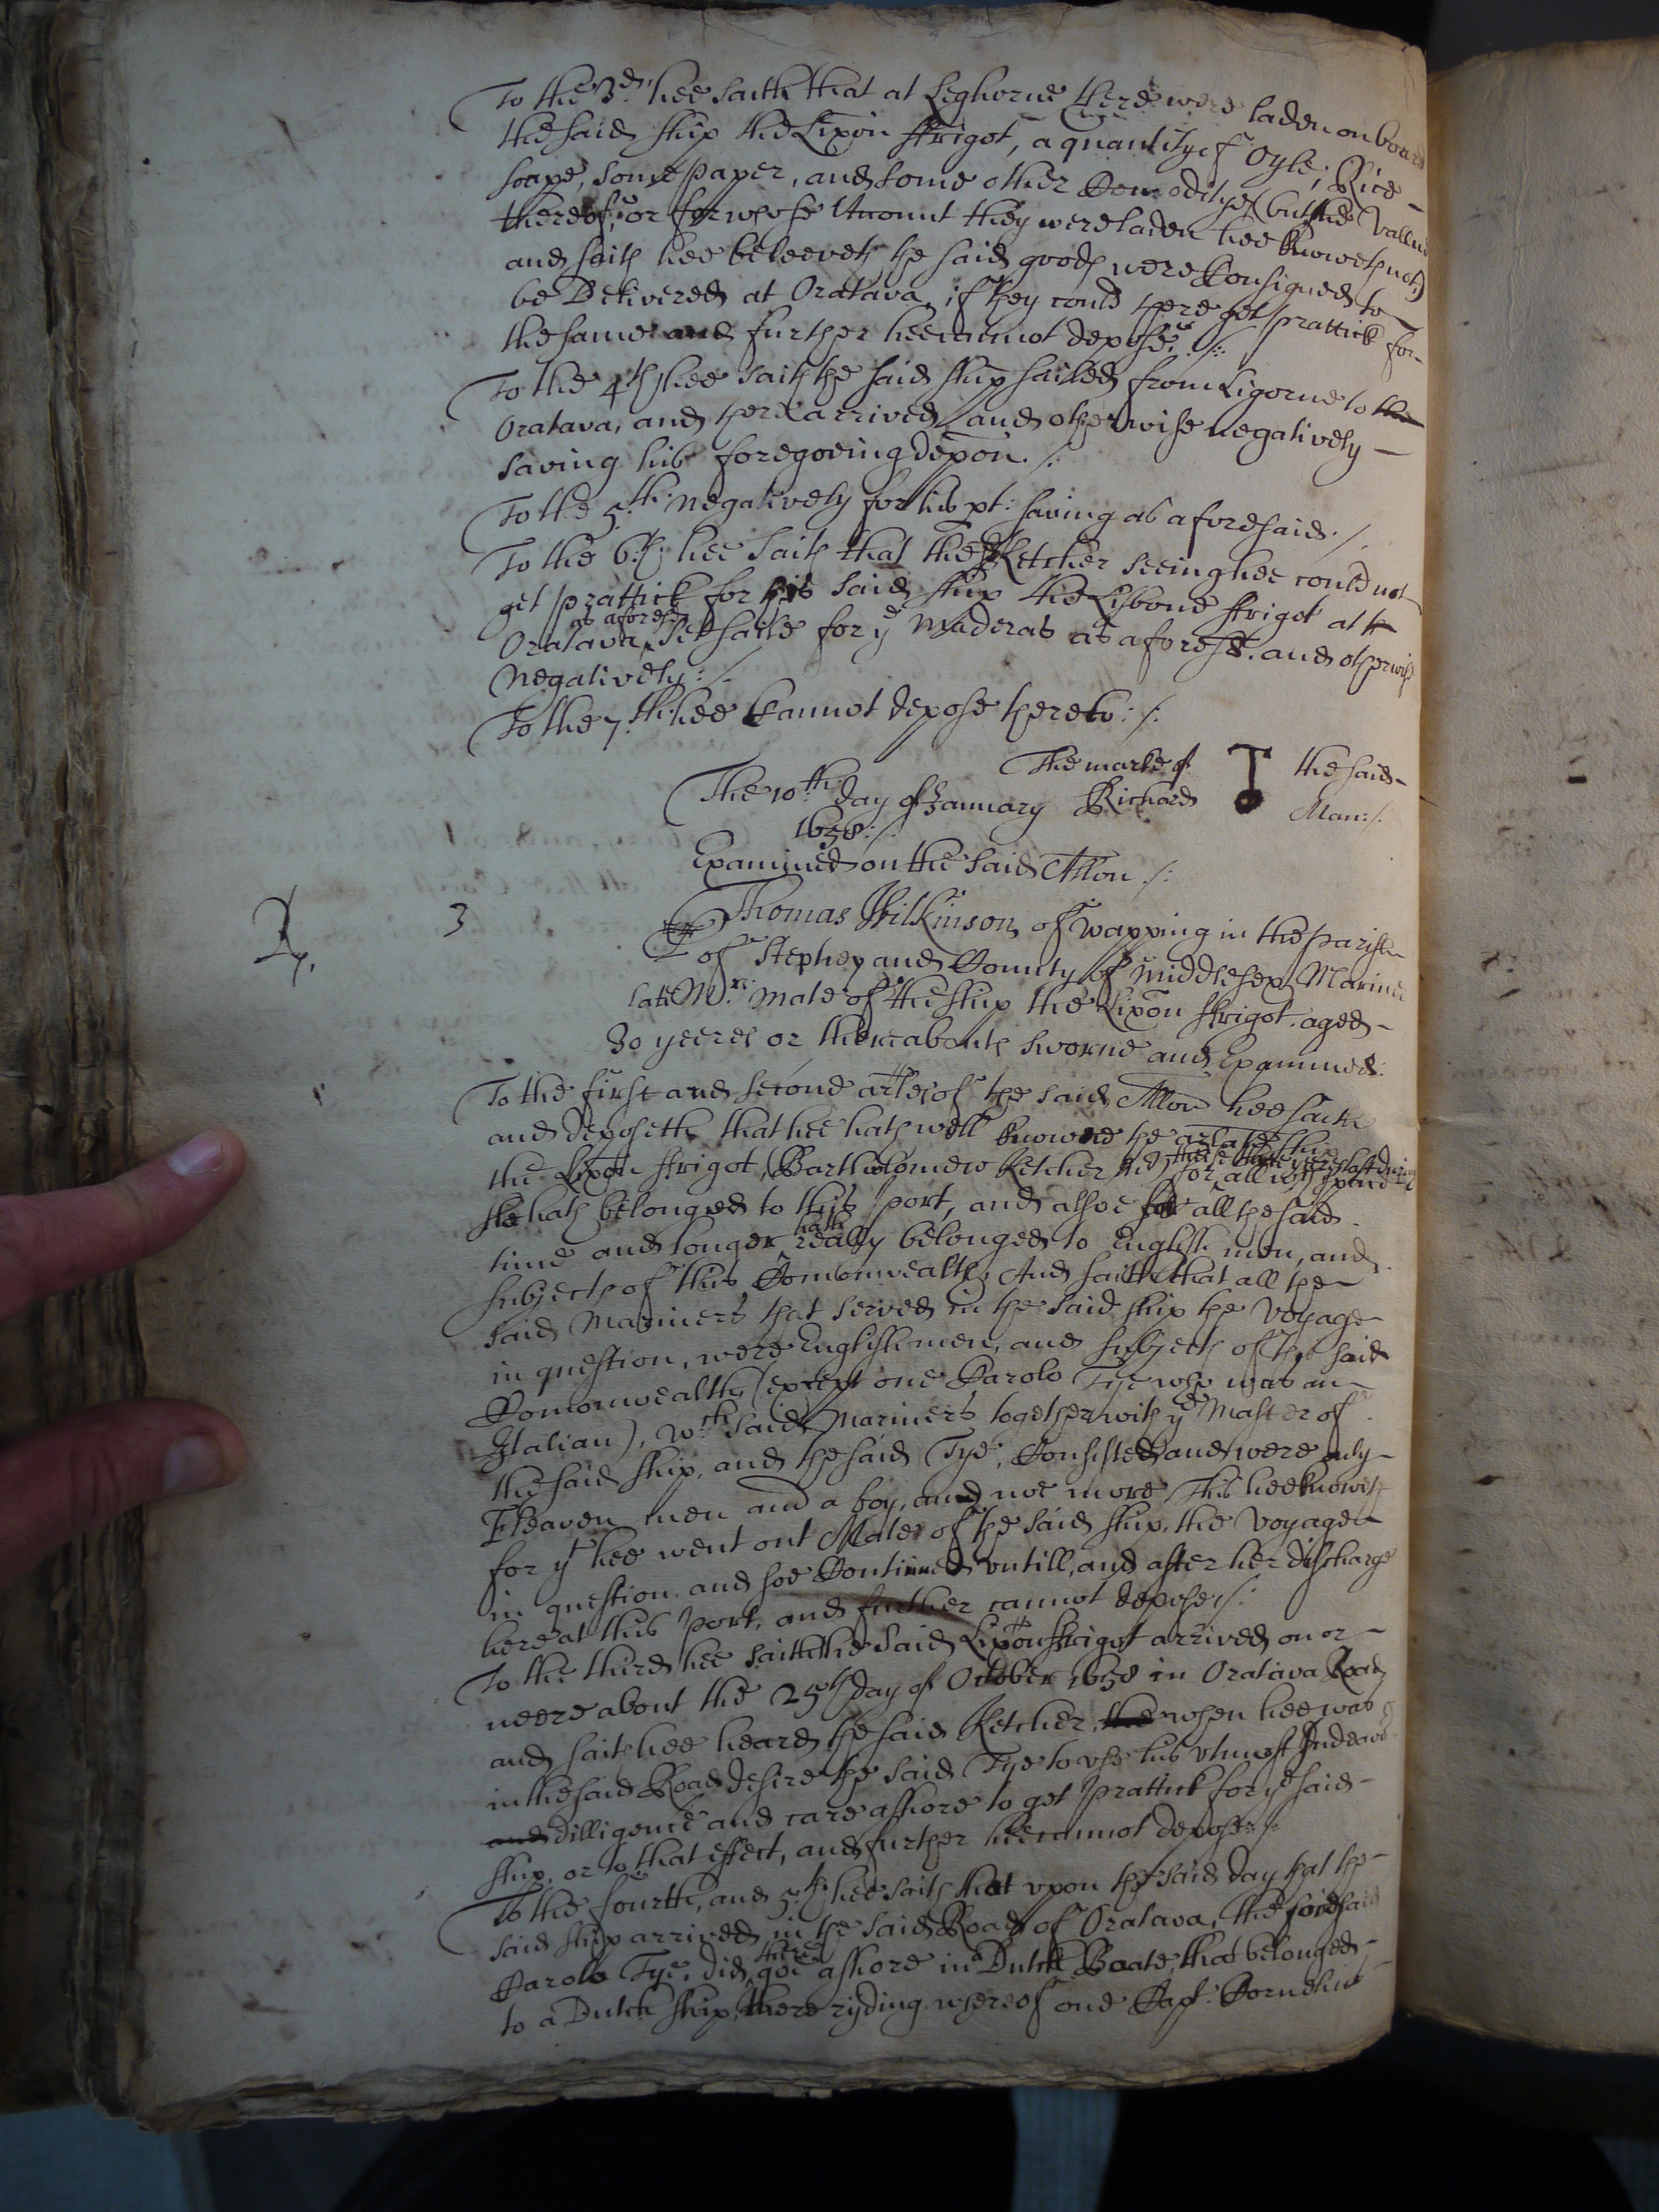 To the 3.d hee saith that at Leghorne there were laden on board
the said ship the Lixon ffrigot, a quantity of Oyle, Rice
soape, some paper, and some other Comodityes (but the Vallue
thereof, or for whose Account they were laden hee knoweth not)
and saith hee beleeveth the said goods were Consigned to
be Delivered at Oratava, if they could there get prattick for
the same and further hee cannot depose. /:
To the 4th hee saith the said ship sailed from Ligorne to the
Oratava, and there arrived and otherwise negatively
saving his foregoeing depon. /:
To the 5.th negatively for his pt: saving as aforesaid. /.
To the 6.th hee saith that the Ketcher seeing hee could not
get prattick for his said ship the Lisbone ffrigot at
as aforesd
Oratava, set saile for ye Maderas as aforesd. and otherwise
negatively: /.
To the 7.th hee Cannot depose thereto: /:
The marke of the said
The 10th day of January Richard T Man: /:
1658: /:
Examined on the said Allon. /:
3 Thomas Wilkinson of Wapping in the parish
of Stepney and County of Middlesex Mariner
late Mrs. Mate of the ship the Lixon ffrigot, aged
30 yeeres or thereabouts sworne and Examined:
To the first and second arles of the said Allon hee saith
and deposeth that hee hath well knowne the arlate ship
the Lixon ffrigot, (Bartholomew Ketcher for all wch time
shee hath belonged to this port, and alsoe for all the said
hath
time and longer really belonged to English men, and
subjects of this Comonwealth, And saith that all the
said Mariners that served in the said ship the voyage
in question, were Englishmen, and subjects of the said
Comonwealth (except one Carolo Tye who was an
Italian), wch. said Mariners together with ye Master of
the said ship, and the said Tye, Consisted and were only
Eleaven men and a boy, and noe more This hee knoweth
for yt hee went out Mate of the said ship, the voyage
in question, and soe Continued untill, and after her discharge
here at this Port, and further cannot depose. /:
To the third hee saith the said Lixon ffrigot arrived on or
neere about the 25th day of October 1658 in Oratava Road
and saith hee heard the said Ketcher, the when hee was
in the said Road desire the said Tye to use his utmost Indeavor
and dilligence and care ashore to get prattick for ye said
ship, or to that effect, and further hee cannot depose: /:
To the fourth, and 5.th hee saith that upon the said day that the
said ship arrived in the said Road of Oratava, the said
there
Carolo Tye, did goe ashore in Dutch Boate, that belonged
to a Dutch ship, there ryding whereof one Capt: Cornelius